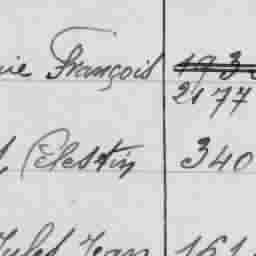 François 193
2177
Célestin 340
Jules Jean 161